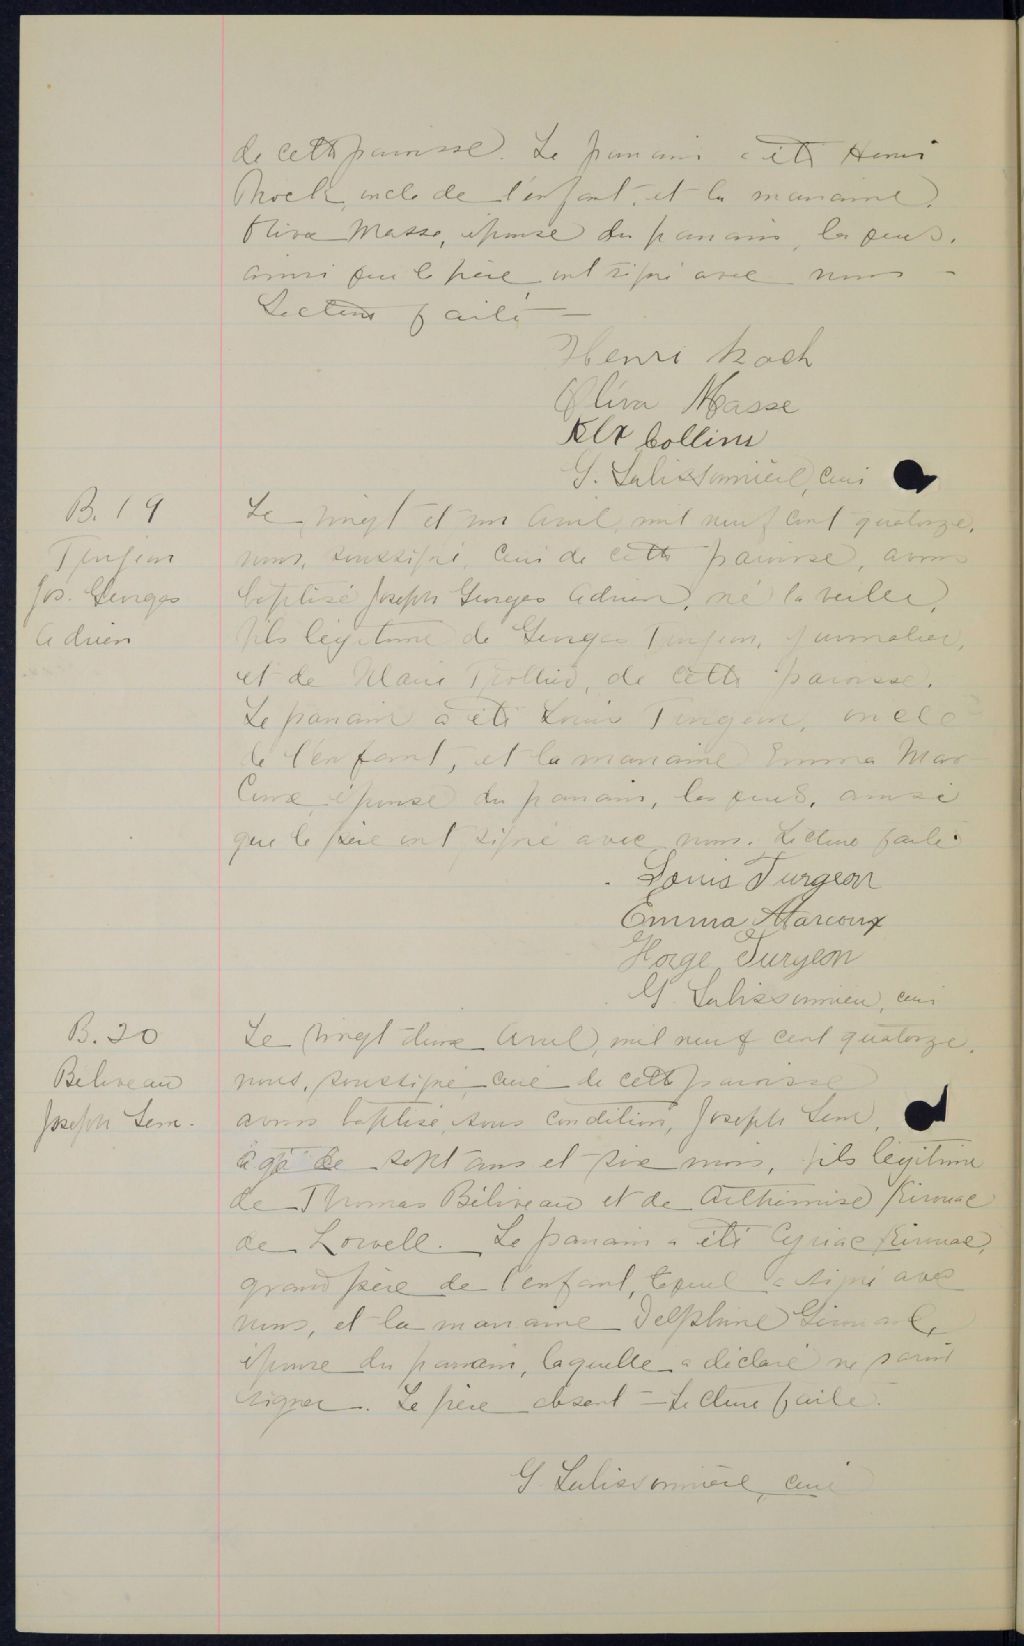 de cette paroisse. Le parrain a été Henri
Rock, oncle de l'enfant, et la marraine,
Oliva Masse, épouse du parrain, lesquels,
ainsi que le père ont signé avec nous —
Lecture faite —
Henri Rock
Oliva Masse
Alx Collins
G. Salissonnière, curé
B. 19
Turgeon
Jos. Georges
Adrien
Le vingt et un Avril, mil neuf cent quatorze,
nous, soussigné, curé de cette paroisse, avons
baptisé Joseph Georges Adrien, né la veille,
fils légitime de Georges Turgeon, journalier,
et de Marie, de cette paroisse.
Le parrain a été Louis Turgeon, oncle
de l'enfant, et la marraine Emma Mar
coux, épouse du parrain, lesquels, ainsi
que le père ont signé avec nous. Lecture faite.
Louis Turgeon
Emma Marcoux
Gorge Turgeon
G. Salissonnière, curé
B. 20
Béliveau
Joseph Lem.
Le vingt-deux Avril, mil neuf cent quatorze,
nous, soussigné, curé de cette paroisse
avons baptisé, sous condition, Joseph Lem,
âgé de sept ans et six mois, fils légitime
de Thomas Béliveau et de Arthémise Kirouac
de Lowell. Le parrain a été Cyriac Kirouac,
grand père de l'enfant, lequel a signé avec
nous, et la marraine Delphine
épouse du parrain, laquelle a déclaré ne savoir
signer. Le père absent — Lecture faite.
G. Salissonnière, curé